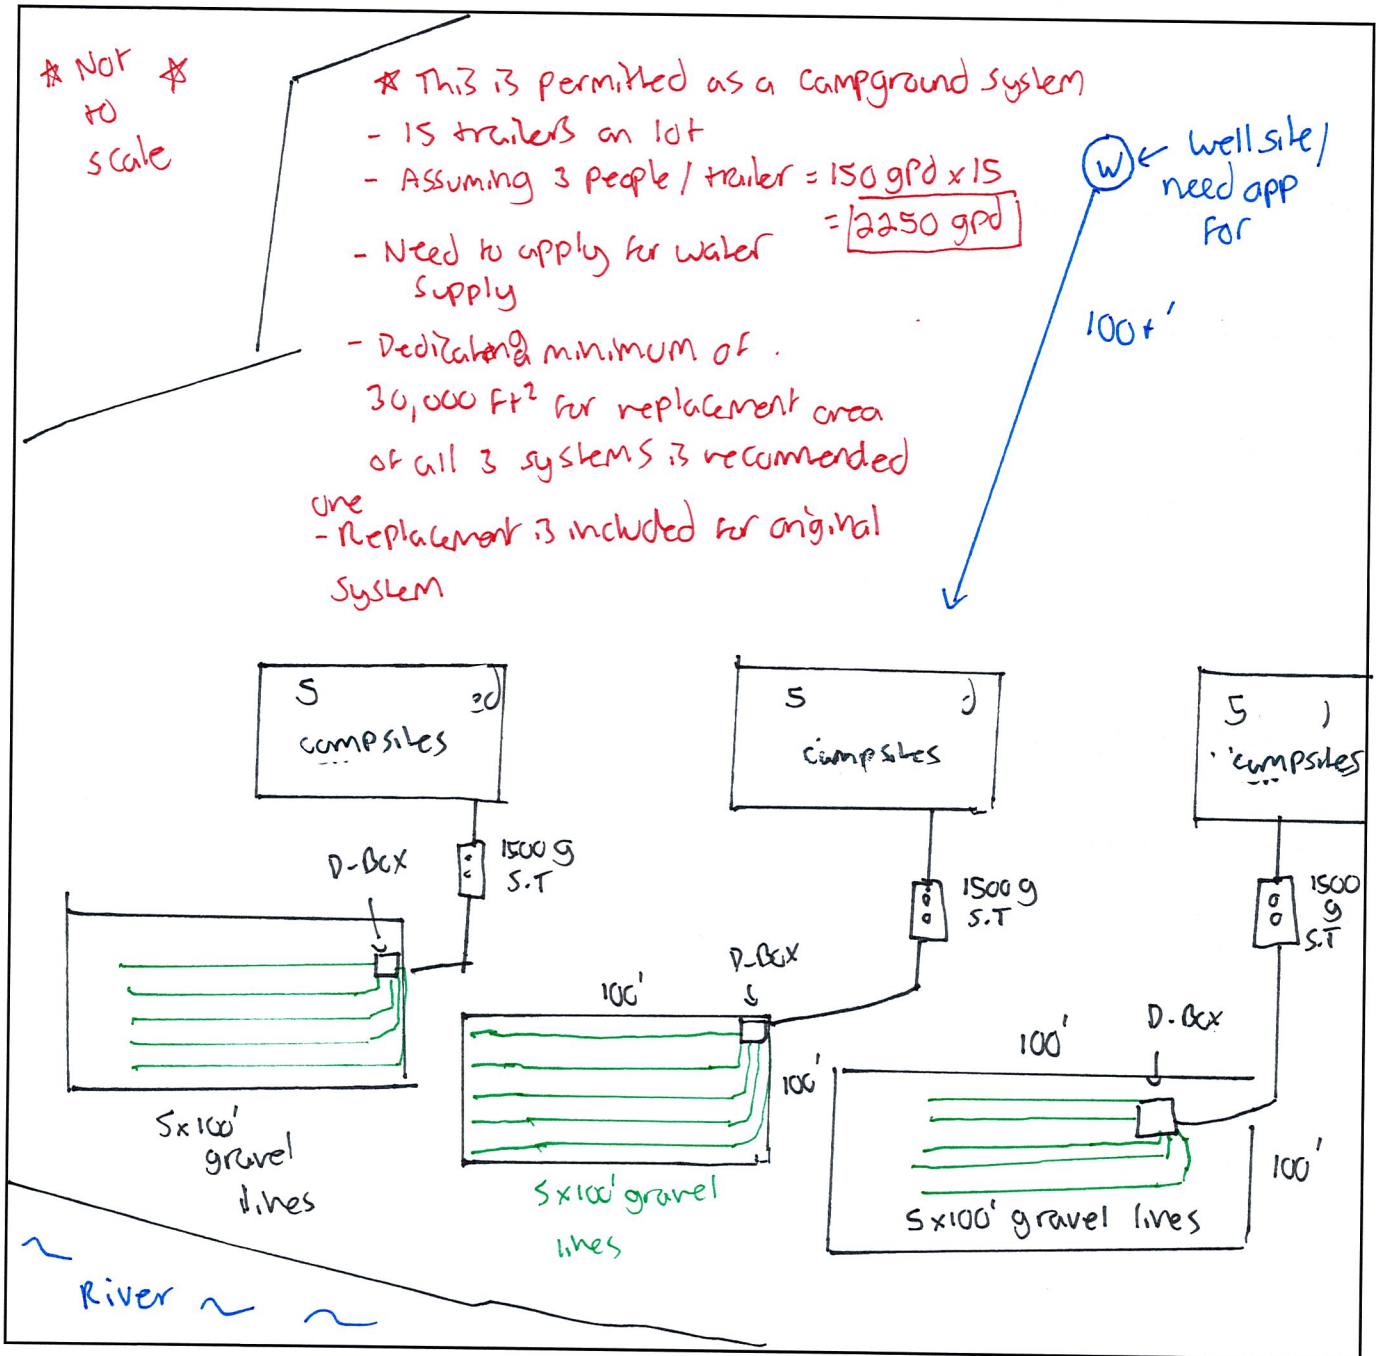 ☆ Not ☆
to
scale
☆ This is permitted as a campground system
- 15 trailers on lot
- Assuming 3 people / trailer = 150 gpd x 15
= 2250 gpd
- Need to apply for water
supply
- Dedicating minimum of
30,000 Ft² for replacement area
of all 3 systems is recommended
one
- Replacement is included for original
system
W ← well site /
need app
for
100+'
5
campsites
5
campsites
5
campsites
D-Box
1500 g
S.T
1500 g
S.T
1500
g
S.T
D-Box
100'
100'
D-Box
100'
100'
5x100'
gravel
lines
5x100' gravel
lines
5x100' gravel lines
~ River ~ ~